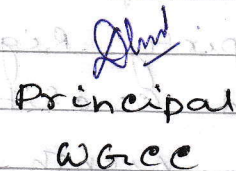 Principal
WGCC